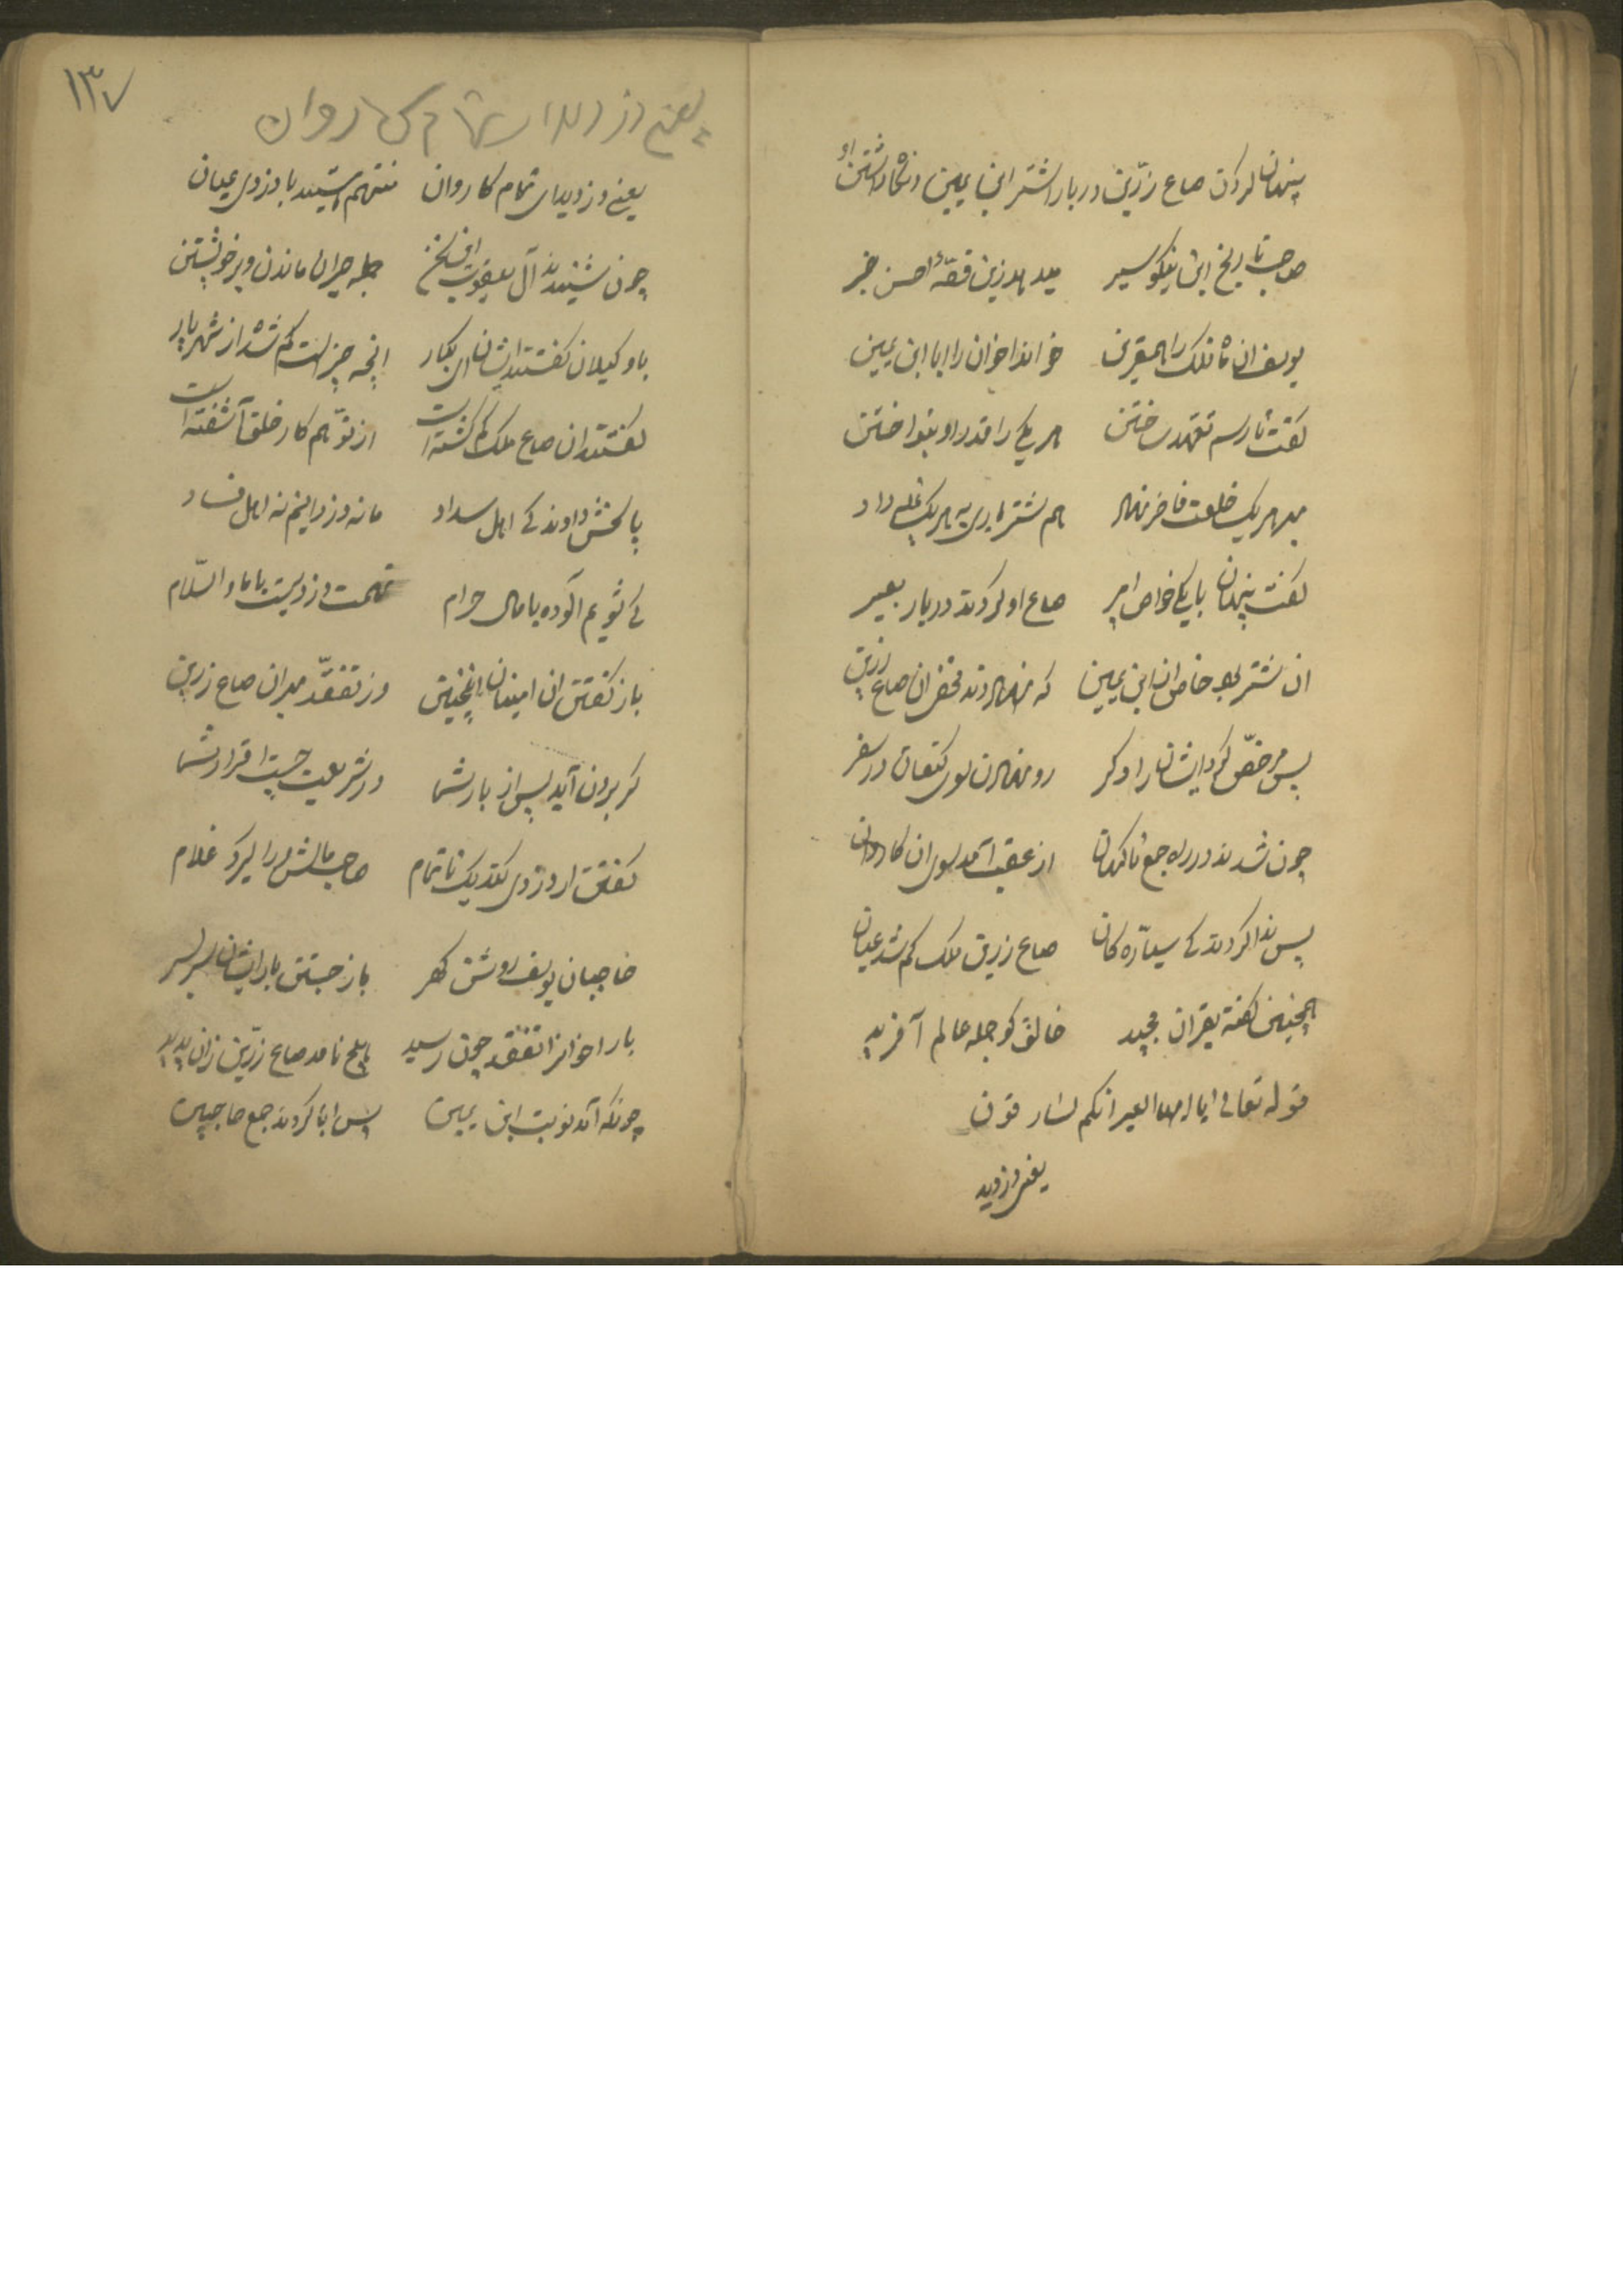 پنهان کردن صاع زرّین در بار اشتر ابن یمین و نگاه داشتن او
صاحب تاریخ این نیکو سیر میدهد زین قصّهٔ احسن خبر
یوسف ان شاه ملک را همقرین خواند اخوان را ابا ابن یمین
گفت تا رسم تعهد ساختن هر یکی را قدر او بنواختن
بهر هر یک خلعت فاخر نهاد هم شتر باری به هر یک غله داد
گفت پنهان با یکی خواص امیر صاع او کردند در بار بعیر
ان شتر بد خاص ان ابن یمین که نهادند مخفی ان صاع زرین
پس مرخّص کرد ایشانرا دکر رو نهادن سوی کنعان در سفر
چون شدند در راه جمع ناکهان از عقب آمد سوی ان کاروان
پس ندا کردند کی سیّاره کان صاع زرین ملک کم شد عیان
همچنین گفته بقران مجید خالق کو جمله عالم آفرید
قوله تعالی ایا ایها العیر انکم لسارقون
یعنی دزدید
۱۳۷
یعنی دزدیدای تمام کاروان
یعنی دزدیدای تمام کاروان متهم هستید با دزدی عیان
چون شنیدند آل یعقوب این سخن جمله حیران ماندن و بر خویشتن
با وکیلان گفتند ایشان ای بکار انچه چیزاست کم شده از شهریار
گفتند ان صاع ملک کم گشته است از توّهم کار خلق آشفته است
پاسخش دادند کی اهل سداد ما نه دزدانیم نه اهل فساد
کی شویم آلوده با مال حرام تهمت دزدیست با ما والسّلام
باز گفتن ان امینان اینچنین وز تفقّد میر ان صاع زرین
گر برون آید پس از بار شما در شریعت چیست اقرار شما
گفتن ار دزدی کند یک ناتمام صاحب مالش ورا گیرد غلام
حاجبان یوسف روشن کهر باز جستن بار ایشان سر بسر
بار اخوانرا تفقد چون رسید هیچ نامد صاع زرّین زان پدید
چونکه آمد نوبت ابن یمین پس ابا کردند جمع حاجبین